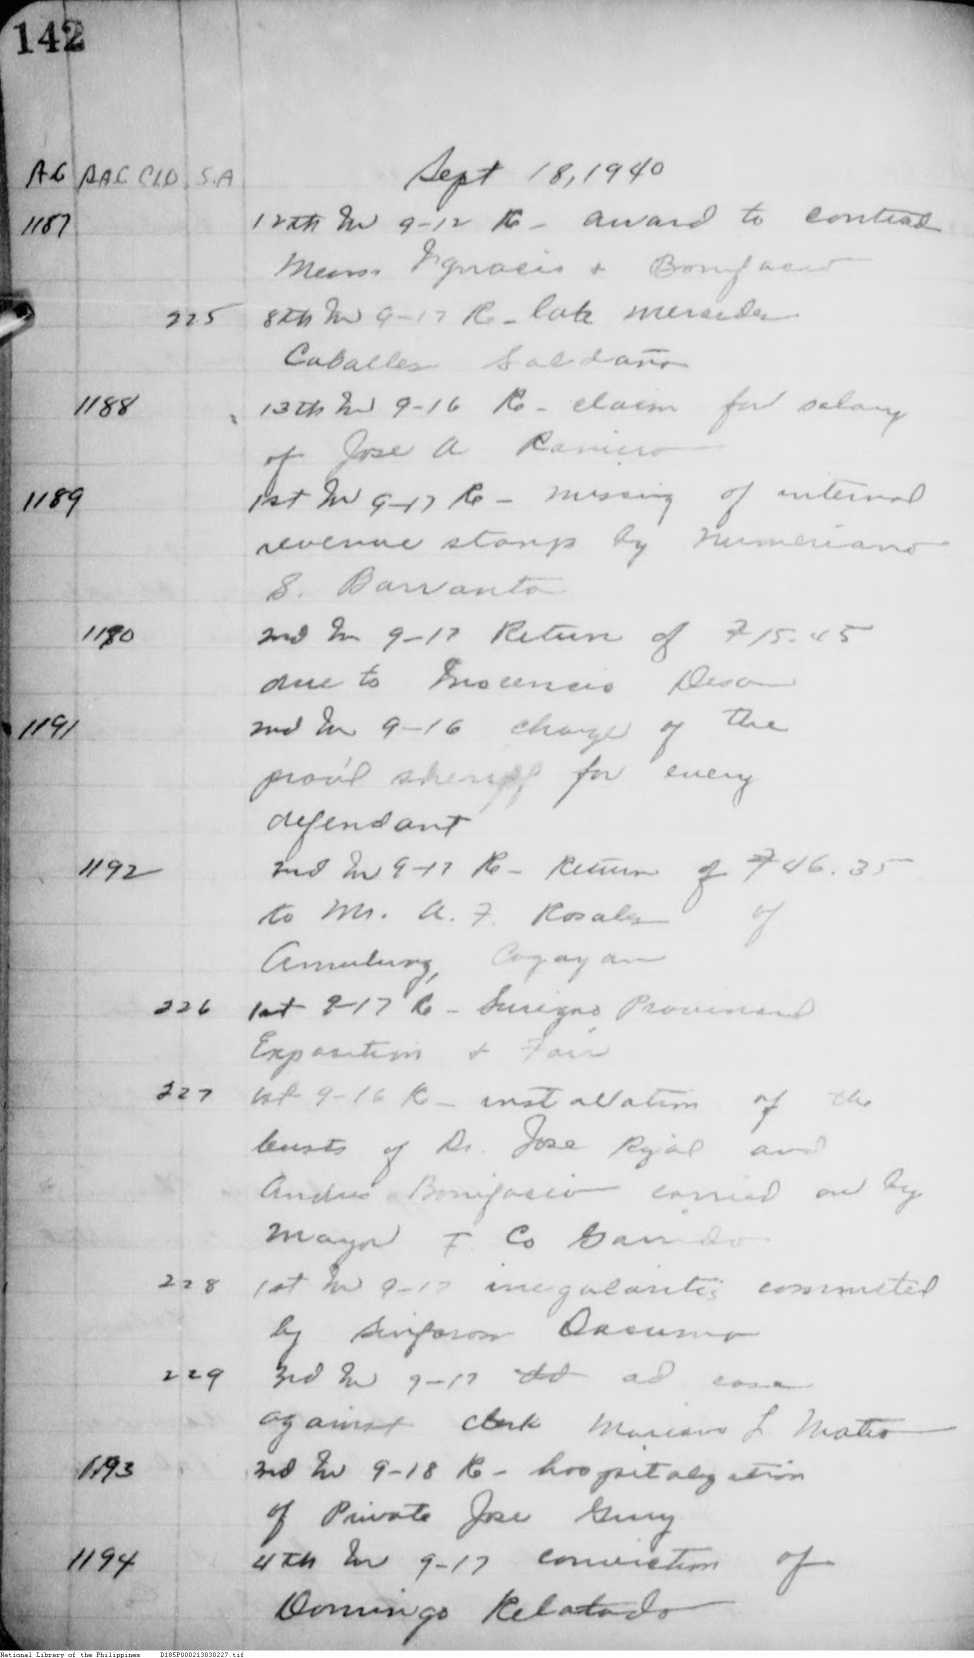 142
AG AAC CLD S.A Sept 18, 1940
1187 12th In 9-12 Re - award to contract
Messrs Ygnacio & Bonifacio
225 8th In 9-17 Re - late Mercedes
Caballes Saldaña
1188 13th In 9-16 Re - claim for salary
of Jose A Ramiro
1189 1st In 9-17 Re - missing of internal
revenue stamps by Numeriano
S. Barranta
1190 2nd In 9-17 Return of ₱15.45
due to Inocencio
1191 2nd In 9-16 charge of the
prov'l sheriff for every
defendant
1192 2nd In 9-17 Re - Return of ₱46.35
to Mr. A. F. Rosales of
Amulung, Cagayan
226 1st 9-17 Re - Surigao Provincial
Exposition & Fair
227 1st 9-16 Re - installation of the
busts of Dr. Jose Rizal and
Andres Bonifacio carried on by
Mayor F. Co
228 1st In 9-17 irregularities committed
by
229 3rd In 9-17 ad case
against clerk Mariano L Mateo
1193 2nd In 9-18 Re - hospitalization
of Private Jose
1194 4th In 9-17 conviction of
Domingo Relatado
National Library of the Philippines D185P000213030227.tif